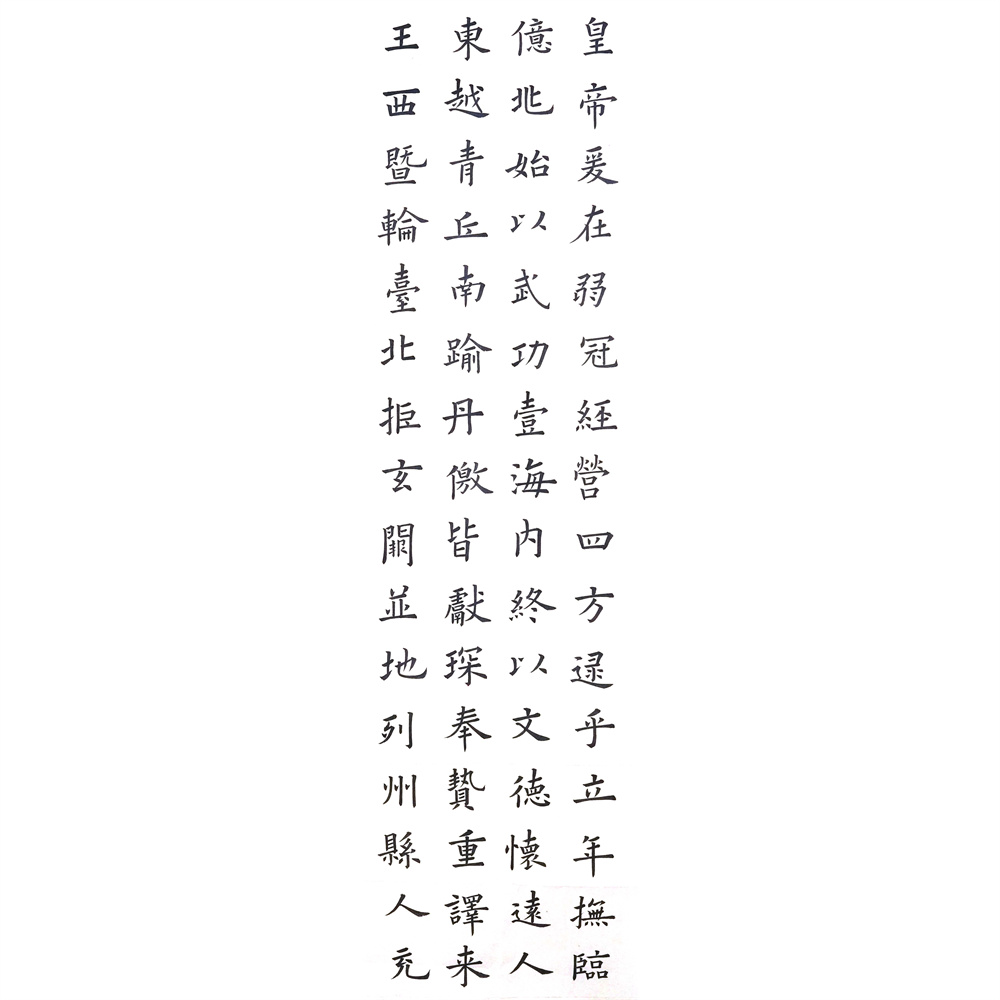 皇帝爰在弱冠經營四方逯乎立年撫臨
億兆始以武功壹海内終以文徳懐遠人
東越青丘南踰丹徼皆獻琛奉贄重譯来
王西暨輪臺北拒玄闕並地列州縣人充